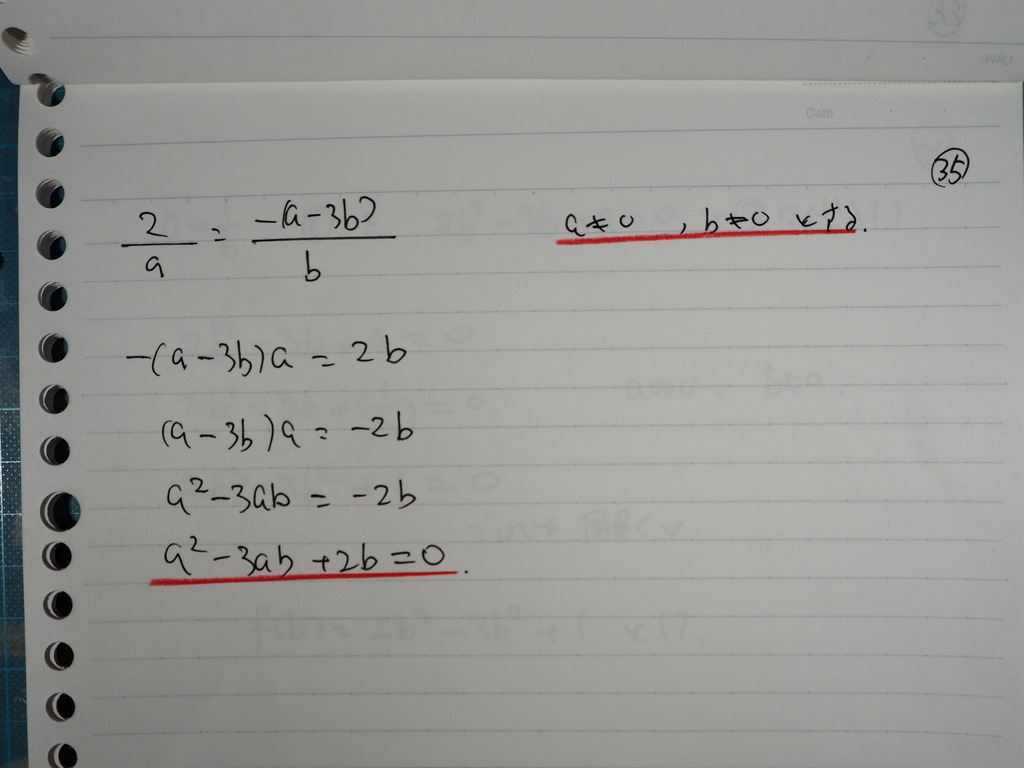 Date
㉟
2/a = -(a-3b)/b    a≠0 , b≠0 とする.
-(a-3b)a = 2b
(a-3b)a = -2b
a²-3ab = -2b
a²-3ab+2b=0.